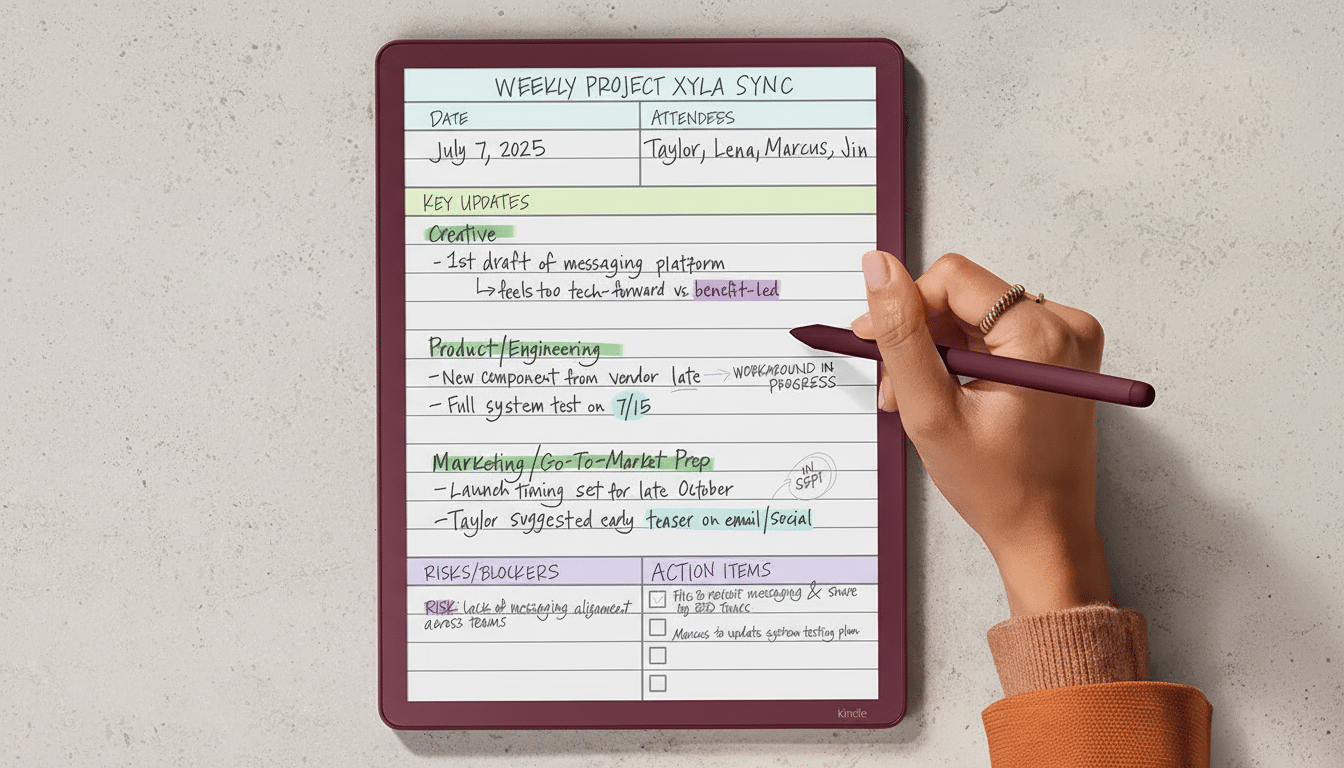 WEEKLY PROJECT XYLA SYNC
DATE
ATTENDEES
July 7, 2025
Taylor, Lena, Marcus, Jin
KEY UPDATES
Creative
- 1st draft of messaging platform
↳ feels too tech-forward vs benefit-led
Product/Engineering
- New component from vendor late → WORKAROUND IN
PROGRESS
- Full system test on 7/15
Marketing/Go-To-Market Prep
- Launch timing set for late October
IN
SEPT
- Taylor suggested early teaser on email/social
RISKS/BLOCKERS
RISK: lack of messaging alignment
across teams
ACTION ITEMS
messaging & share
to update system testing plan
kindle